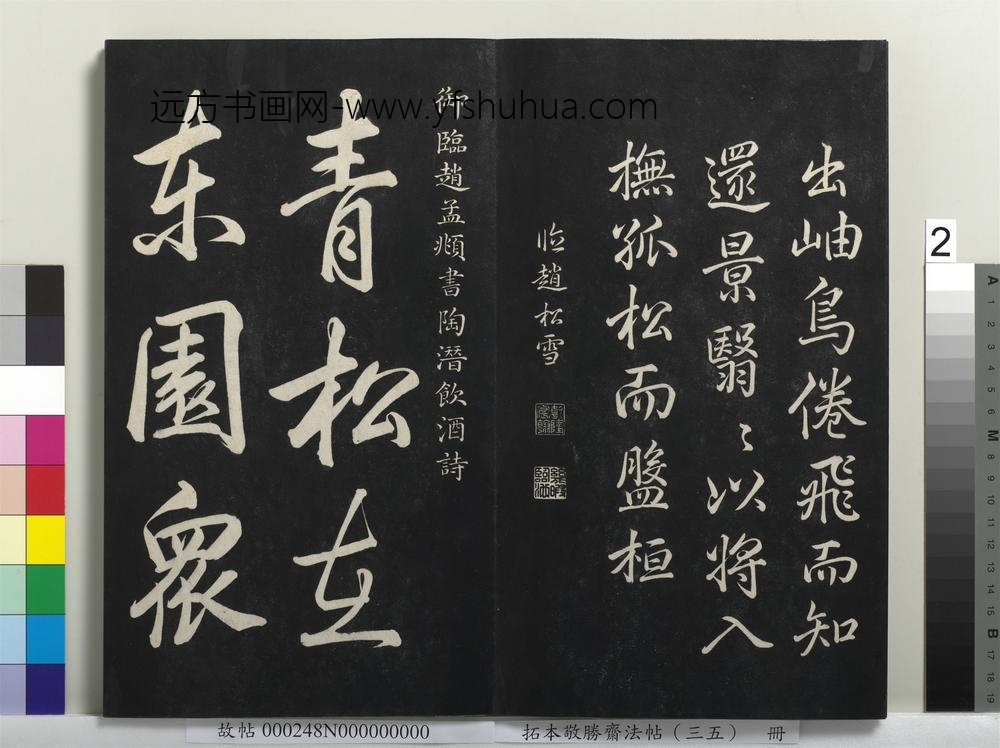 出岫鳥倦飛而知
還景翳〻以將入
撫孤松而盤桓
臨趙松雪
御臨趙孟頫書陶潛飲酒詩
青松在
东園衆
远方书画网-www.yfshuhua.com
2
A 1 2 3 4 5 6 M 8 9 10 11 12 13 14 15 B 17 18 19
故帖 000248N000000000
拓本敬勝齋法帖（三五） 冊